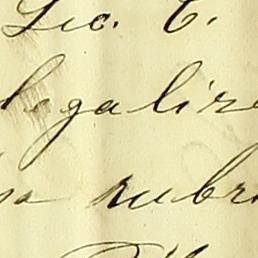 Lic. C.
legaliza
sa rubri